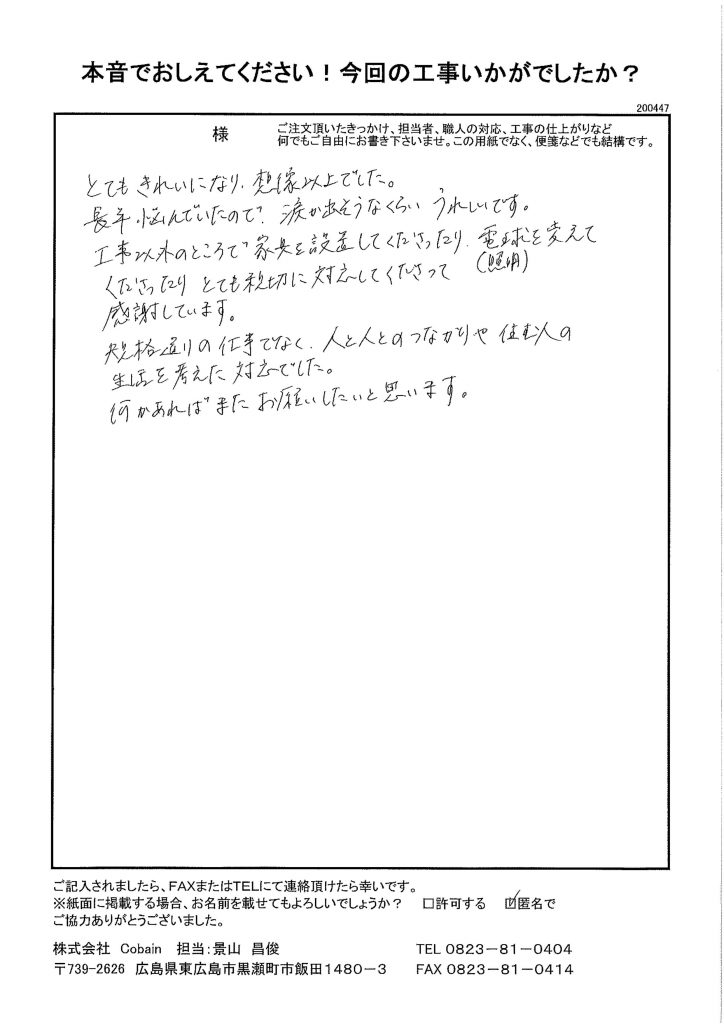 本音でおしえてください！今回の工事いかがでしたか？
200447
様
ご注文頂いたきっかけ、担当者、職人の対応、工事の仕上がりなど
何でもご自由にお書き下さいませ。この用紙でなく、便箋などでも結構です。
とてもきれいになり、想像以上でした。
長年、悩んでいたので、涙が出そうなくらい うれしいです。
工事以外のところで家具を設置してくださったり、電球を変えて
(照明)
くださったり とても親切に対応してくださって
感謝しています。
規格通りの仕事でなく、人と人とのつながりや 住む人の
生活を考えた対応でした。
何かあればまたお願いしたいと思います。
ご記入されましたら、FAXまたはTELにて連絡頂けたら幸いです。
※紙面に掲載する場合、お名前を載せてもよろしいでしょうか？ □許可する ☑匿名で
ご協力ありがとうございました。
株式会社 Cobain 担当：景山 昌俊 TEL 0823－81－0404
〒739-2626 広島県東広島市黒瀬町市飯田1480－3 FAX 0823－81－0414